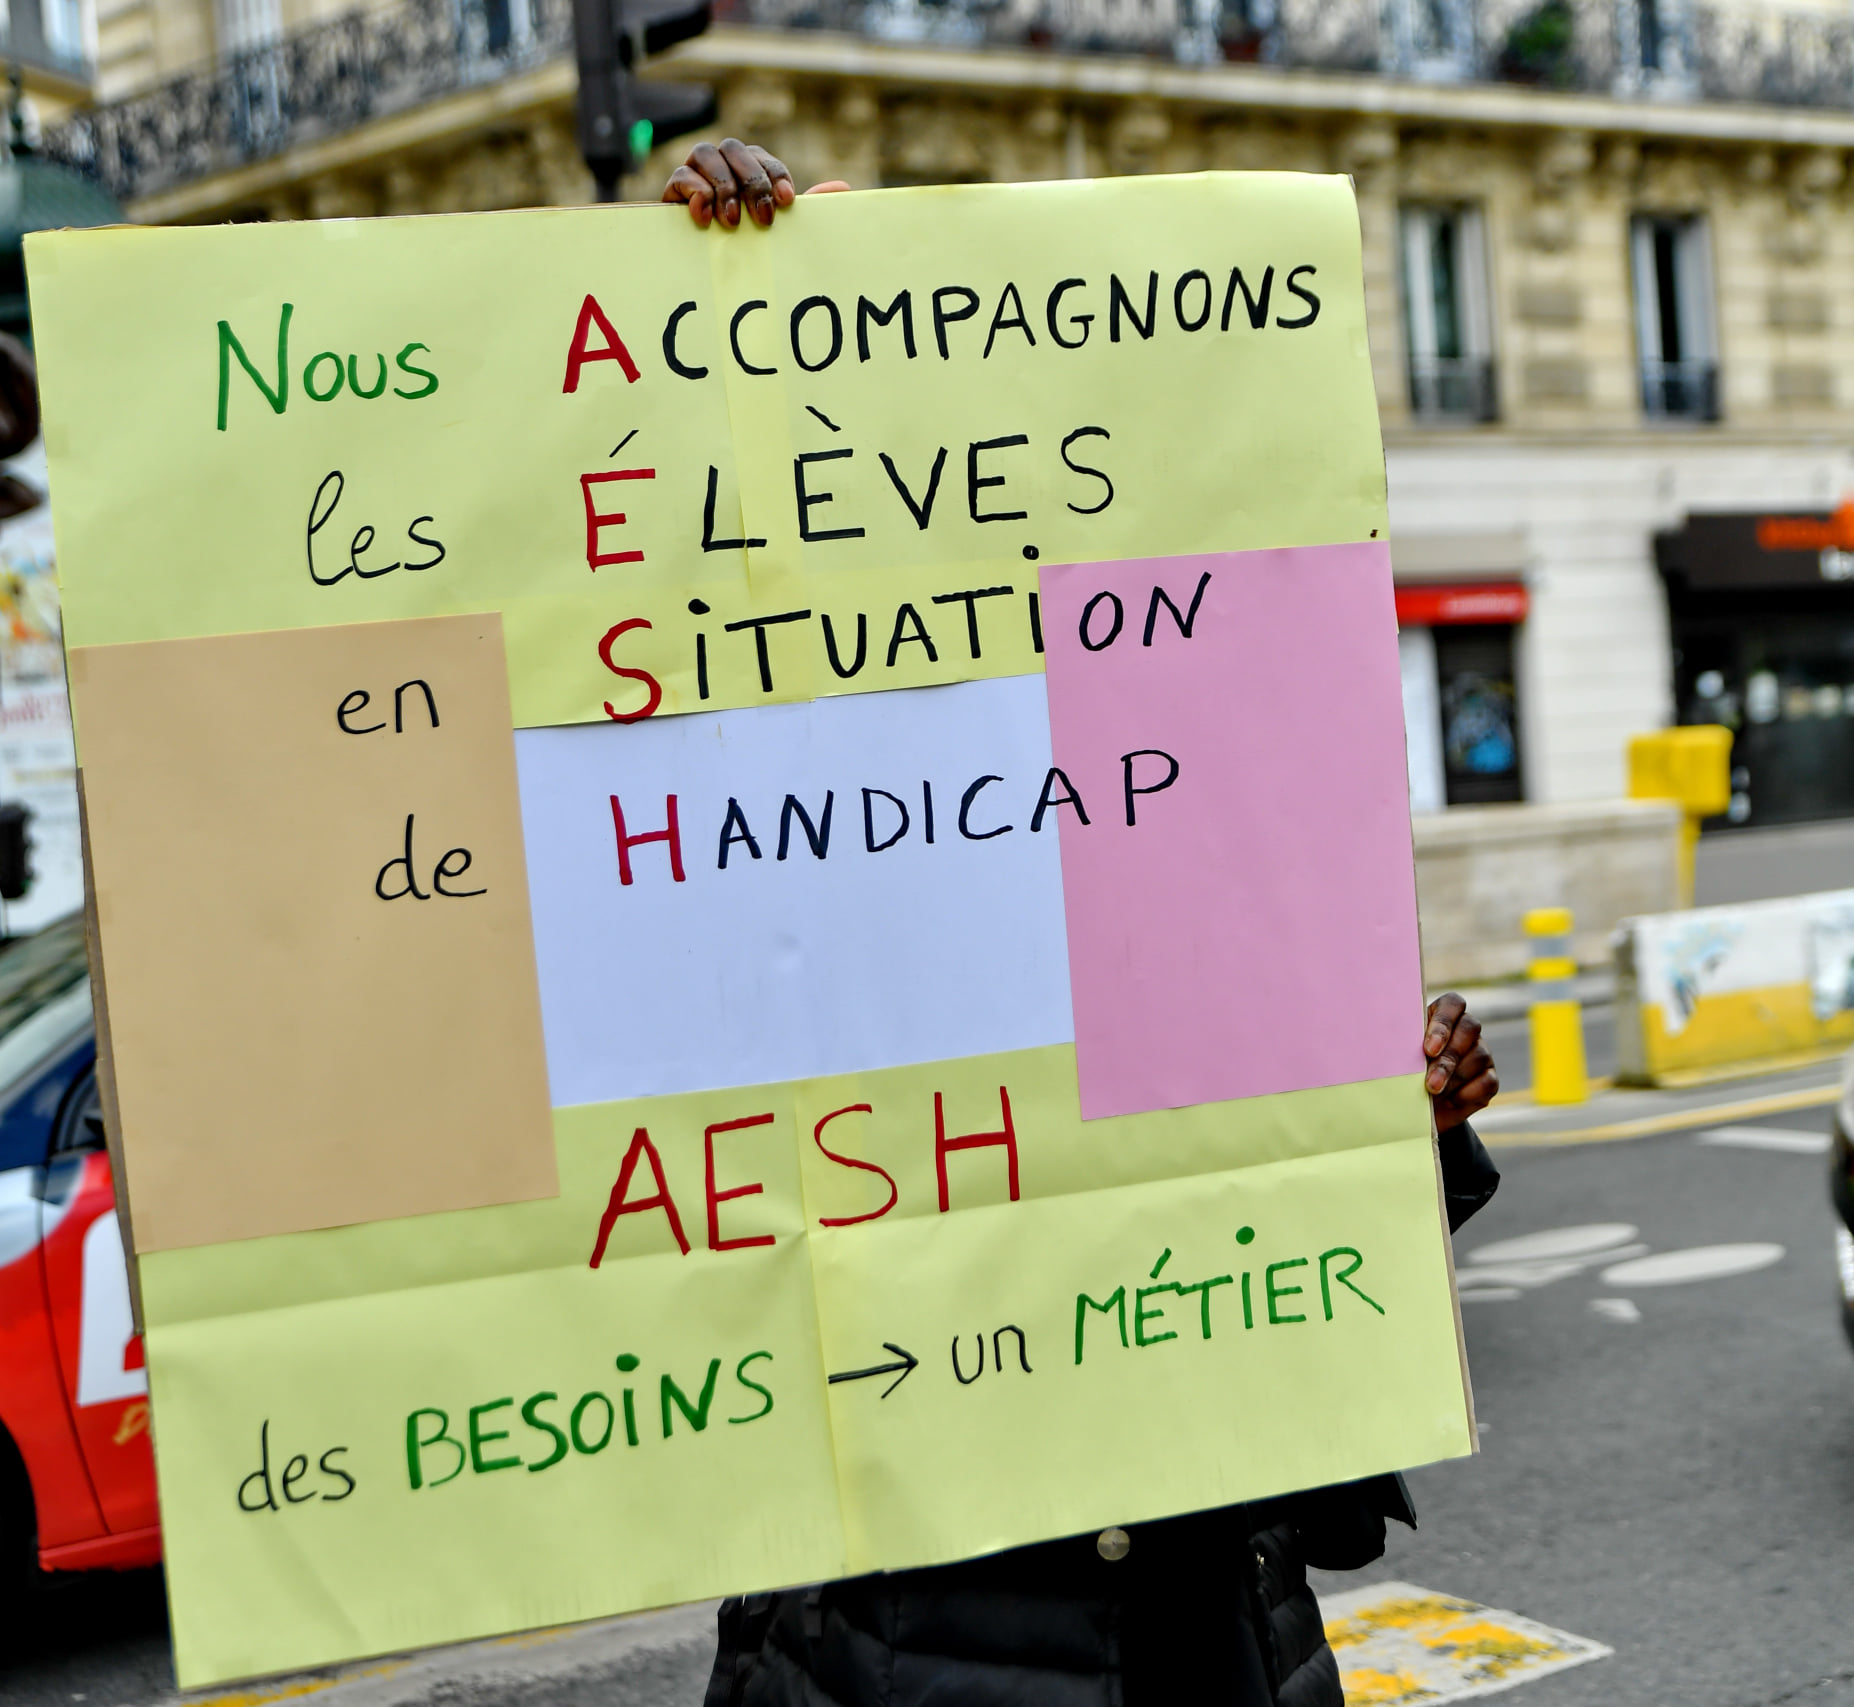 Nous ACCOMPAGNONS
les ÉLÈVES
en SiTUATiON
de HANDICAP
AESH
des BESOiNS → un MÉTiER